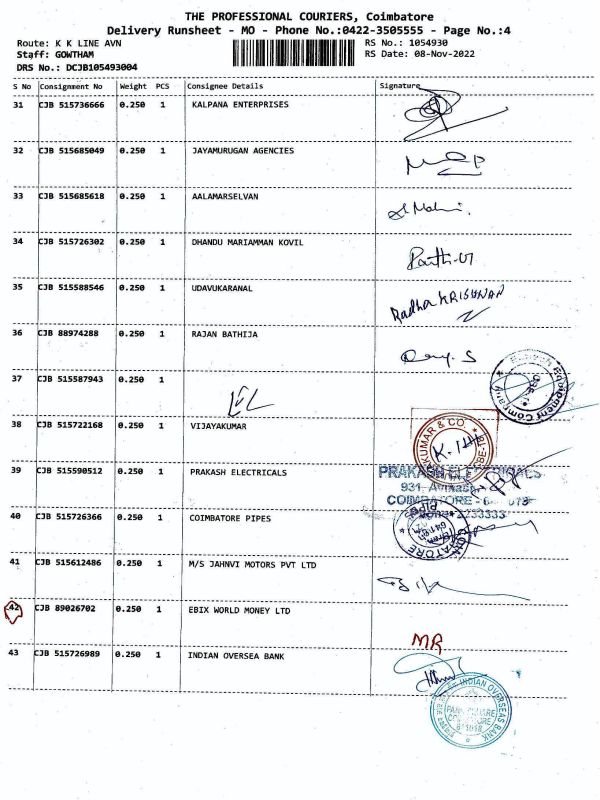 THE PROFESSIONAL COURIERS, Coimbatore
Delivery Runsheet - MO - Phone No.:0422-3505555 - Page No.:4
Route: K K LINE AVN
RS No.: 1054930
Staff: GOWTHAM
RS Date: 08-Nov-2022
DRS No.: DCJB105493004
S No Consignment No Weight PCS Consignee Details Signature
31 CJB 515736666 0.250 1 KALPANA ENTERPRISES
32 CJB 515685049 0.250 1 JAYAMURUGAN AGENCIES
33 CJB 515685618 0.250 1 AALAMARSELVAN
34 CJB 515726302 0.250 1 DHANDU MARIAMMAN KOVIL
35 CJB 515588546 0.250 1 UDAVUKARANAL Radha KRISHNAN
36 CJB 88974288 0.250 1 RAJAN BATHIJA
37 CJB 515587943 0.250 1
Equipment Company
38 CJB 515722168 0.250 1 VIJAYAKUMAR
KUMAR & CO.
39 CJB 515590512 0.250 1 PRAKASH ELECTRICALS
PRAKASH ELECTRICALS
931
COIMBATORE
40 CJB 515726366 0.250 1 COIMBATORE PIPES
41 CJB 515612486 0.250 1 M/S JAHNVI MOTORS PVT LTD
42 CJB 89026702 0.250 1 EBIX WORLD MONEY LTD
MR
43 CJB 515726989 0.250 1 INDIAN OVERSEA BANK
INDIAN OVERSEAS BANK